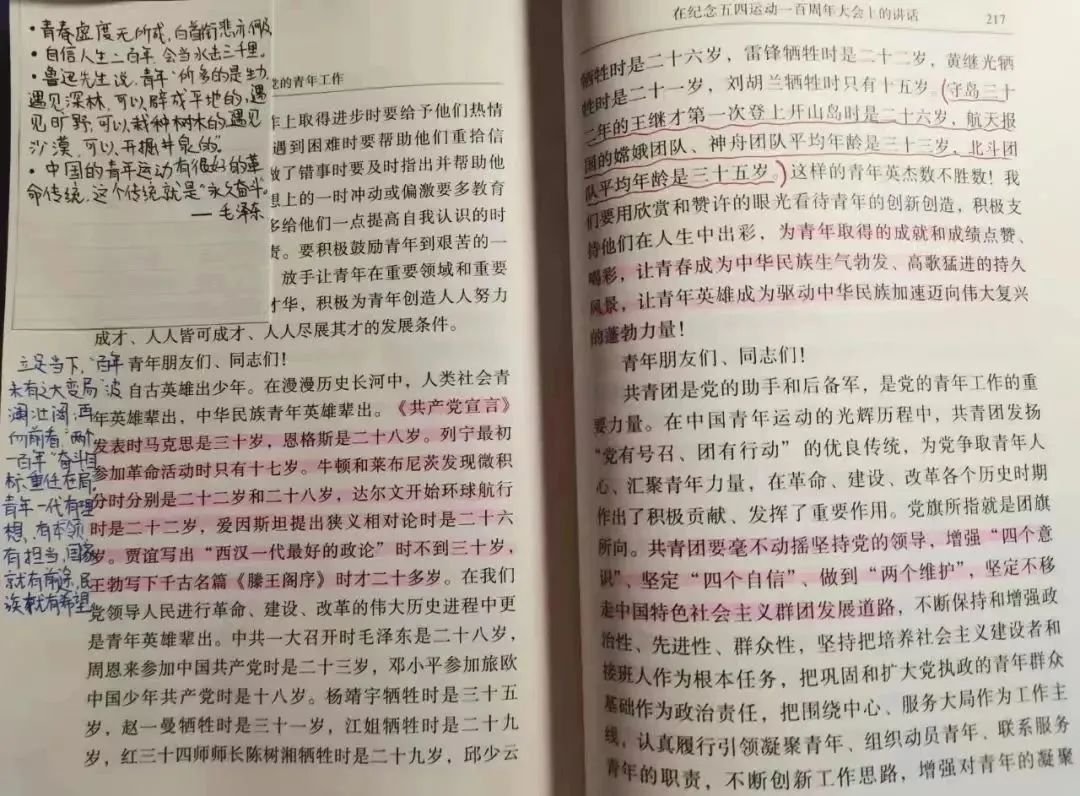 ·青春虚度无所成,白首衔悲亦何及
·自信人生二百年,会当水击三千里。
·鲁迅先生说,青年"所多的是生力,
遇见深林,可以辟成平地的,遇
见旷野,可以栽种树木的,遇见
沙漠,可以开掘井泉的"
·中国的青年运动有很好的革
命传统,这个传统就是"永久奋斗"。
——毛泽东
党的青年工作
作上取得进步时要给予他们热情
遇到困难时要帮助他们重拾信
做了错事时要及时指出并帮助他
想上的一时冲动或偏激要多教育
多给他们一点提高自我认识的时
责。要积极鼓励青年到艰苦的一
放手让青年在重要领域和重要
才华,积极为青年创造人人努力
成才、人人皆可成才、人人尽展其才的发展条件。
青年朋友们、同志们!
自古英雄出少年。在漫漫历史长河中,人类社会青
年英雄辈出,中华民族青年英雄辈出。《共产党宣言》
发表时马克思是三十岁,恩格斯是二十八岁。列宁最初
参加革命活动时只有十七岁。牛顿和莱布尼茨发现微积
分时分别是二十二岁和二十八岁,达尔文开始环球航行
时是二十二岁,爱因斯坦提出狭义相对论时是二十六
岁。贾谊写出“西汉一代最好的政论”时不到三十岁,
王勃写下千古名篇《滕王阁序》时才二十多岁。在我们
党领导人民进行革命、建设、改革的伟大历史进程中更
是青年英雄辈出。中共一大召开时毛泽东是二十八岁,
周恩来参加中国共产党时是二十三岁,邓小平参加旅欧
中国少年共产党时是十八岁。杨靖宇牺牲时是三十五
岁,赵一曼牺牲时是三十一岁,江姐牺牲时是二十九
岁,红三十四师师长陈树湘牺牲时是二十九岁,邱少云
立足当下,"百年
未有之大变局"波
澜壮阔,再
向前看,"两个
一百年"奋斗目
标,重任在肩,
青年一代有理
想、有本领
有担当,国家
就有前途,民
族就有希望
在纪念五四运动一百周年大会上的讲话
217
牺牲时是二十六岁,雷锋牺牲时是二十二岁,黄继光牺
牲时是二十一岁,刘胡兰牺牲时只有十五岁。守岛三十
二年的王继才第一次登上开山岛时是二十六岁,航天报
国的嫦娥团队、神舟团队平均年龄是三十三岁,北斗团
队平均年龄是三十五岁。这样的青年英杰数不胜数!我
们要用欣赏和赞许的眼光看待青年的创新创造,积极支
持他们在人生中出彩,为青年取得的成就和成绩点赞、
喝彩,让青春成为中华民族生气勃发、高歌猛进的持久
风景,让青年英雄成为驱动中华民族加速迈向伟大复兴
的蓬勃力量!
青年朋友们、同志们!
共青团是党的助手和后备军,是党的青年工作的重
要力量。在中国青年运动的光辉历程中,共青团发扬
“党有号召、团有行动”的优良传统,为党争取青年人
心、汇聚青年力量,在革命、建设、改革各个历史时期
作出了积极贡献、发挥了重要作用。党旗所指就是团旗
所向。共青团要毫不动摇坚持党的领导,增强“四个意
识”、坚定“四个自信”、做到“两个维护”,坚定不移
走中国特色社会主义群团发展道路,不断保持和增强政
治性、先进性、群众性,坚持把培养社会主义建设者和
接班人作为根本任务,把巩固和扩大党执政的青年群众
基础作为政治责任,把围绕中心、服务大局作为工作主
线,认真履行引领凝聚青年、组织动员青年、联系服务
青年的职责,不断创新工作思路,增强对青年的凝聚